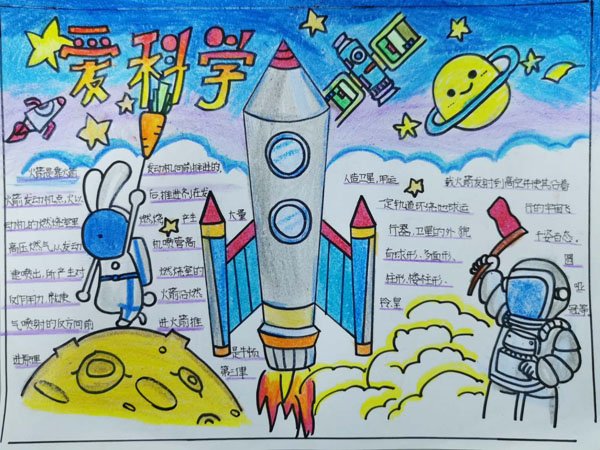 爱科学
火箭是靠火箭 发动机向前推进的,
火箭发动机点火以 后推进剂在发
动机的燃烧室里 燃烧 产生 大量
高压燃气,从发动 机喷管高
速喷出,所产生对 燃烧室的
反作用力,就使 火箭沿燃
气喷射的反方向前 进火箭推
进原理 是牛顿
第三律
人造卫星,用运 载火箭发射到高空并使其沿着
一定轨道环绕地球运 行的宇宙飞
行器,卫星的外貌 千姿百态,
有球形、多面形、 圆
柱形、棱柱形、 哑
铃,皇 冠等